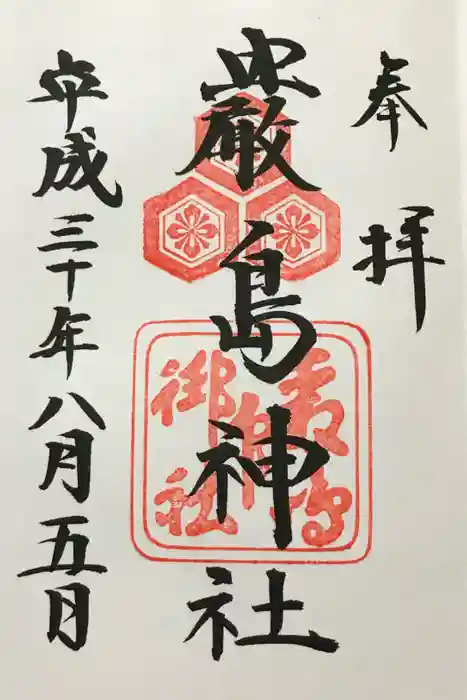 奉拝
厳島神社
平成三十年八月五日
御社